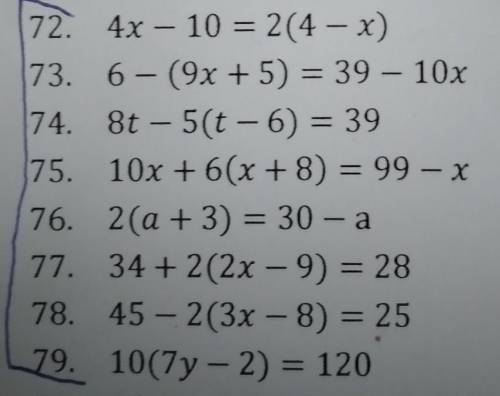 72. 4x − 10 = 2(4 − x)
73. 6 − (9x + 5) = 39 − 10x
74. 8t − 5(t − 6) = 39
75. 10x + 6(x + 8) = 99 − x
76. 2(a + 3) = 30 − a
77. 34 + 2(2x − 9) = 28
78. 45 − 2(3x − 8) = 25
79. 10(7y − 2) = 120